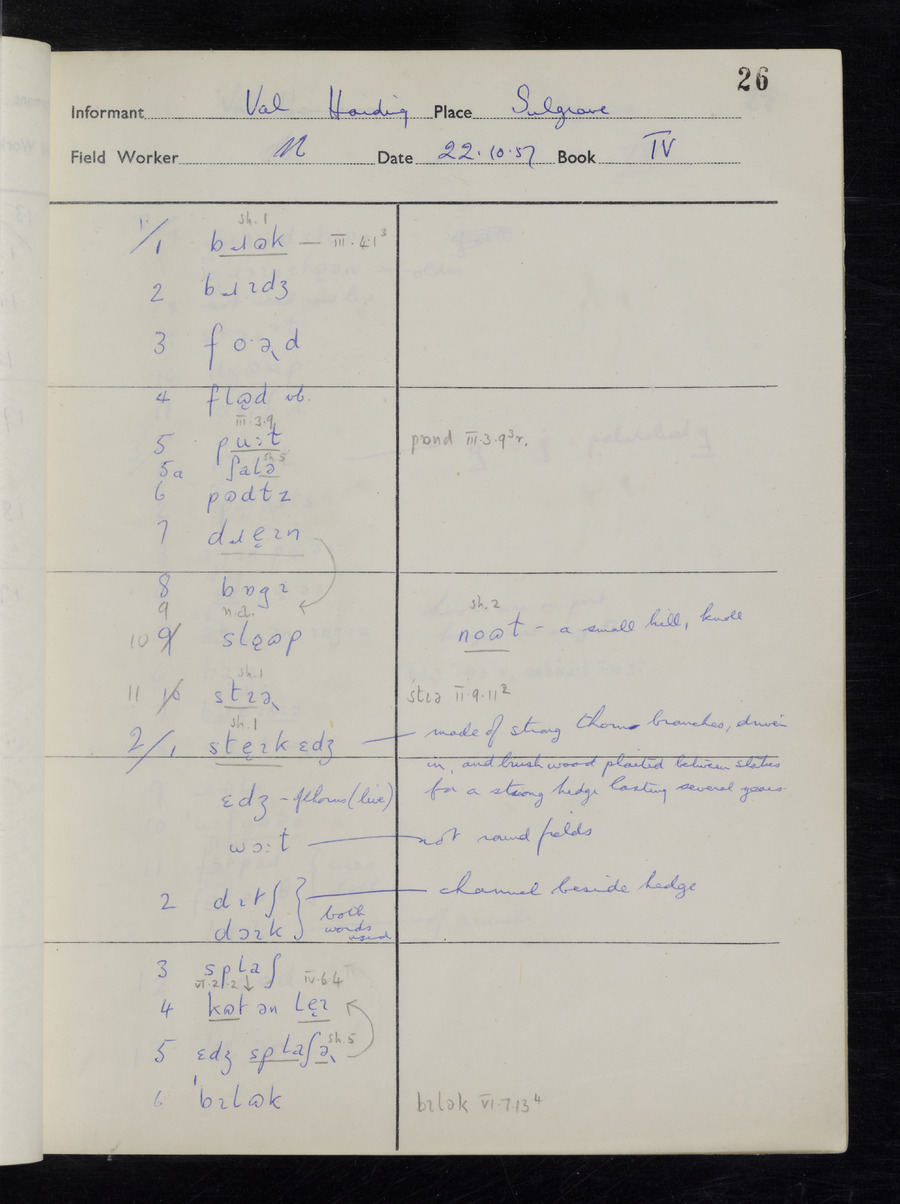 26
Informant Val Harding Place Sulgrave
Field Worker N Date 22.10.57 Book IV
sh.1
1/1 bɹɷk — III.4.1³
2 bɹɪdʒ
3 fo·ə˞d
4 flɷ̜d vb.
III.3.9
5 pu:t pɒnd III.3.9³r.
5a ʃalə sh5
6 pɷdɫz
7 dɹẹɪn
8 bɒgɪ
9 n.a.
sh.2
10 9 slẹɷp noɷt – a small hill, knoll
sh.1
11 10 stɪə˞ stɪə II.9.11²
sh.1
2/1 stẹɪk ɛdʒ — made of strong thorn branches, driven
in, and brushwood plaited between stakes
ɛdʒ – of thorns (live) for a strong hedge lasting several years
wɔ:ɫ — not round fields
2 dɪtʃ } channel beside hedge
dɔɪk } both words used
3 splaʃ
VI.2.2 ↓ IV.6.4
4 kɷt ən lẹɪ
5 ɛdʒ splaʃə˞ sh.5
6 ˈbɪlɷk bɪlək VI.7.13⁴